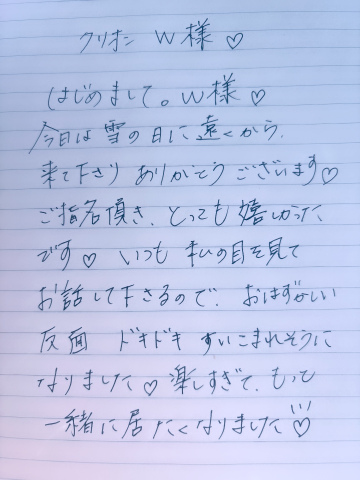 クリオネ W様♡
はじめまして。W様♡
今日は雪の日に遠くから、
来て下さり ありがとうございます♡
ご指名頂き、とっても嬉しかった
です♡ いつも 私の目を見て
お話して下さるので、おはずかしい
反面 ドキドキ すいこまれそうに
なりました♡ 楽しすぎて、もっと
一緒に居たくなりました♡